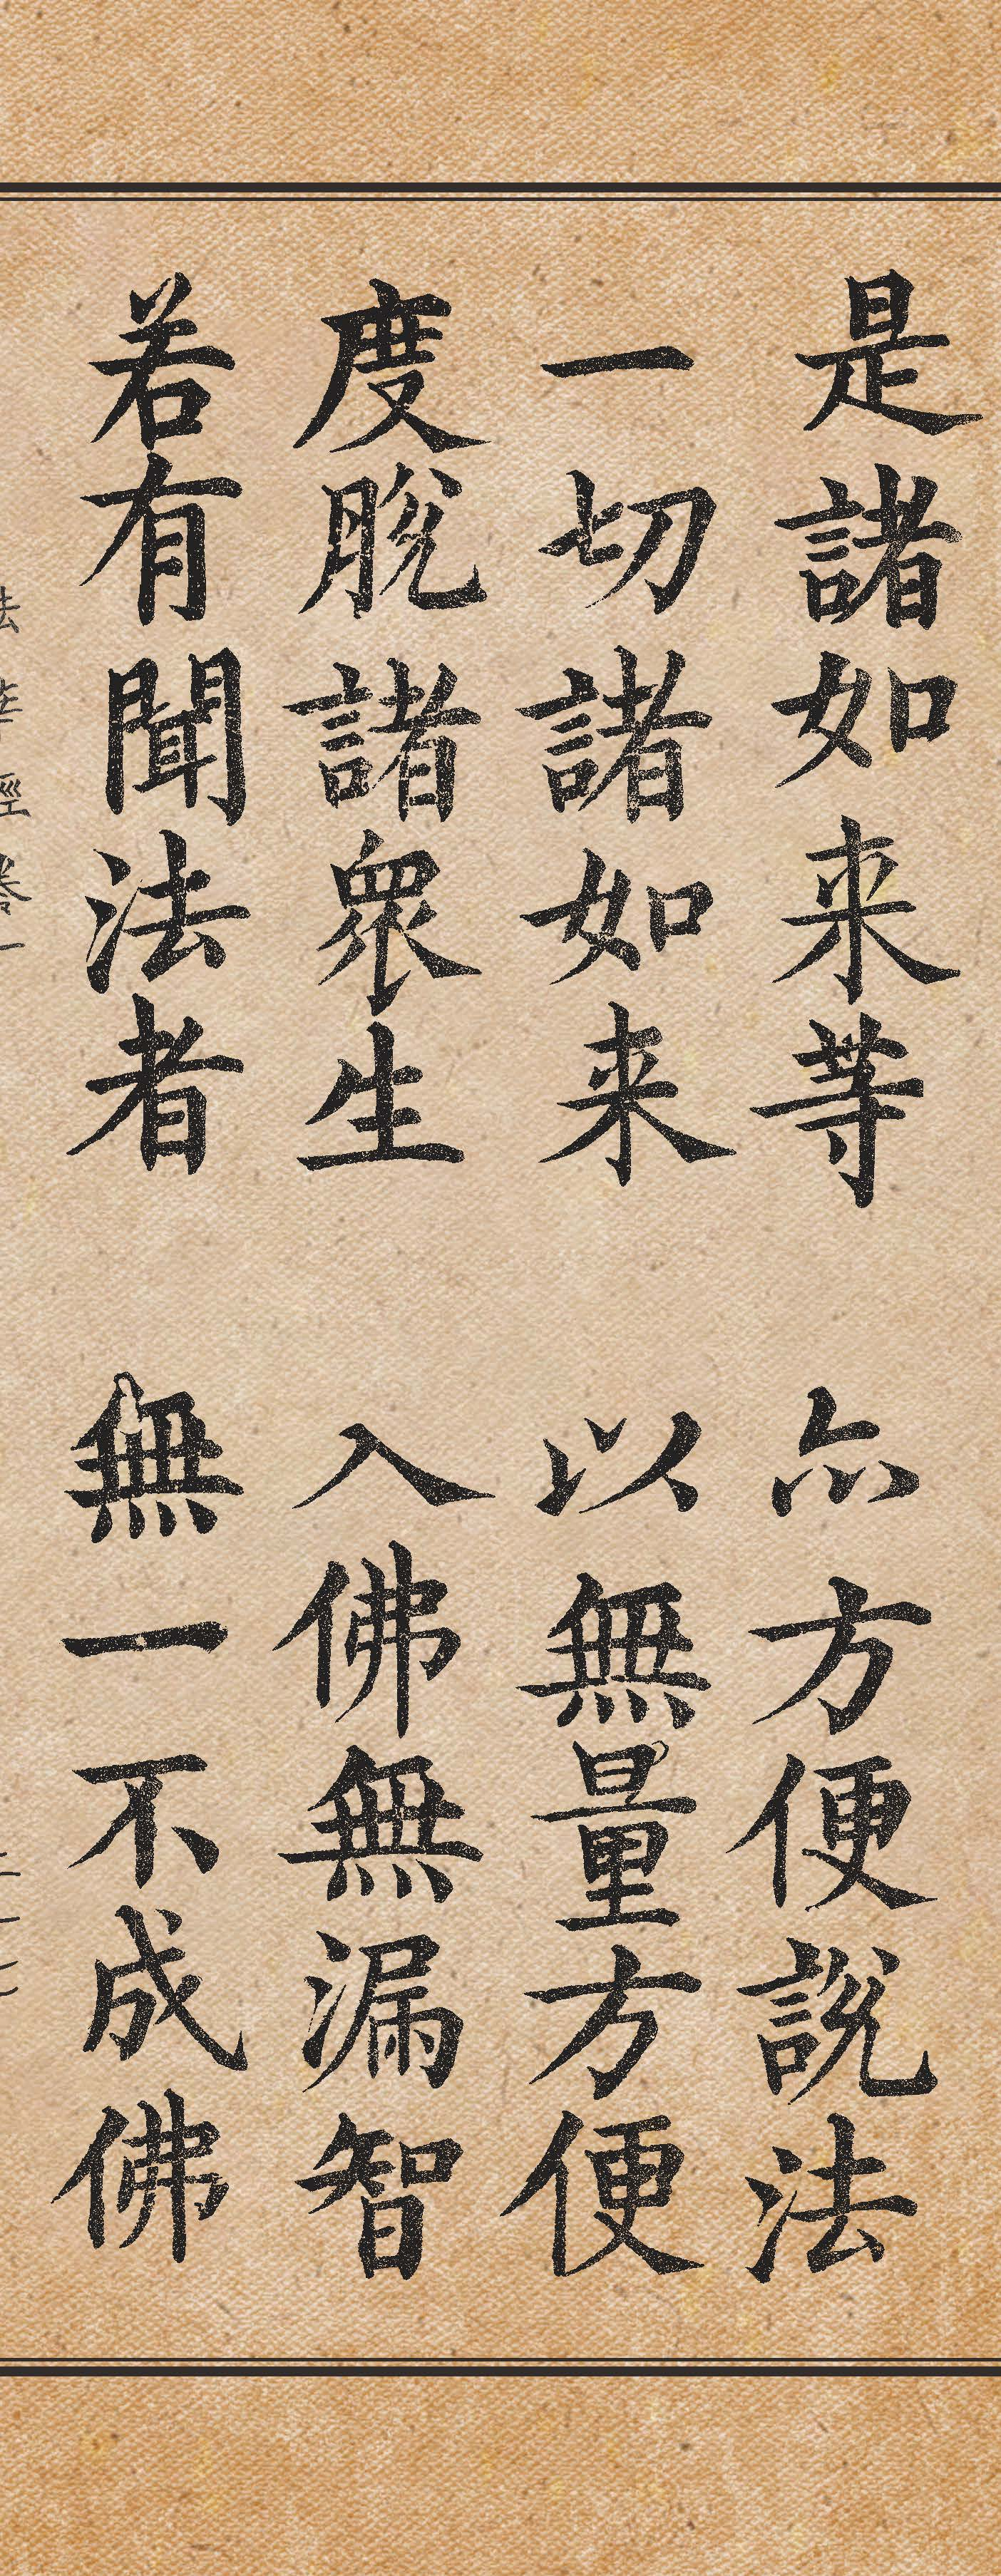 是諸如来等 尒方便說法
一切諸如来 以無量方便
度脫諸衆生 入佛無漏智
若有聞法者 無一不成佛
法華經卷一